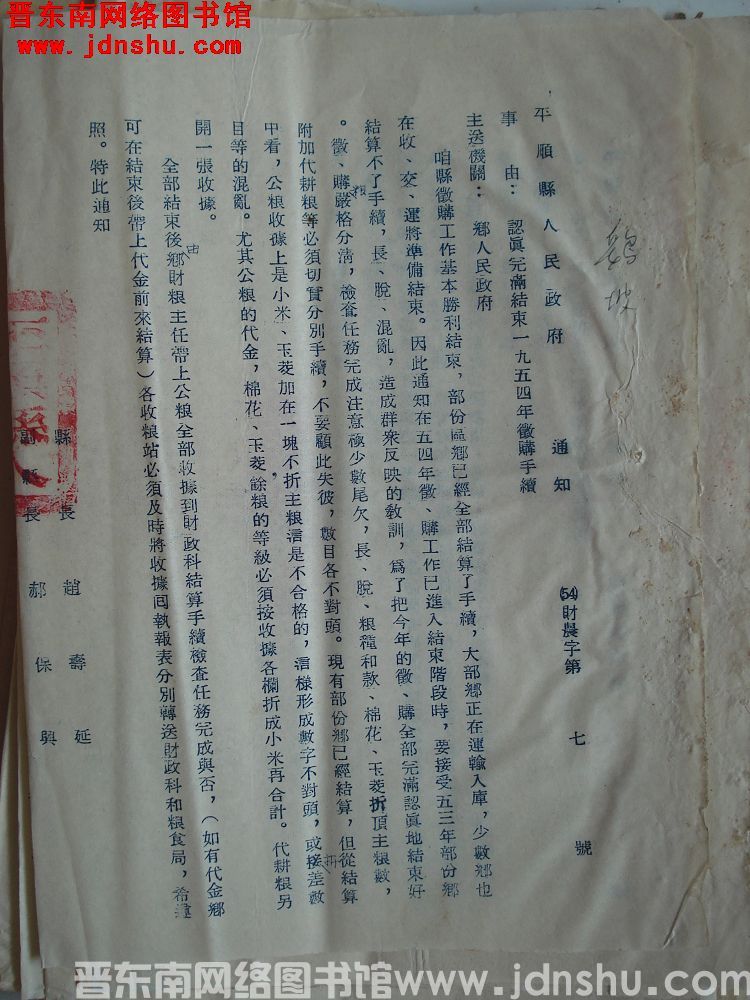 晋东南网络图书馆
www.jdnshu.com
鷄坡
平順縣人民政府 通知 (54)財農字第 七 號
事由：認眞完滿結束一九五四年徵購手續
主送機關：鄉人民政府
咱縣徵購工作基本勝利結束，部份區鄉已經全部結算了手續，大部鄉正在運輸入庫，少數鄉也
在收、交、運將準備結束。因此通知在五四年徵、購工作已進入結束階段時，要接受五三年部份鄉
結算不了手續，長、脫、混亂，造成群衆反映的敎訓，爲了把今年的徵、購全部完滿認眞地結束好
。徵、購嚴格分清，檢查任務完成注意極少數尾欠，長、脫、粮種和欵、棉花、玉茭折頂主粮數，
附加代耕粮等必須切實分別手續，不要顧此失彼，數目各不對頭。現有部份鄉已經結算，但從結算
中看，公粮收據上是小米、玉茭加在一塊不折主粮這是不合格的，這樣形成數字不對頭，或按差數
目等的混亂。尤其公粮的代金，棉花、玉茭餘粮的等級必須按收據各欄折成小米再合計。代耕粮另
開一張收據。
全部結束後由鄉財粮主任帶上公粮全部收據到財政科結算手續檢查任務完成與否，（如有代金鄉
可在結束後帶上代金前來結算）各收粮站必須及時將收據囘執報表分別轉送財政科和粮食局，希遵
照。特此通知
縣長 趙壽延
副縣長 郝保興
晋东南网络图书馆www.jdnshu.com